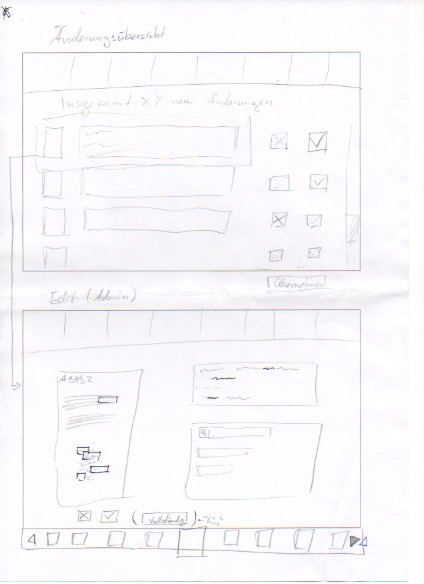 Änderungsübersicht
Insgesamt XY neue Änderungen
Übernehmen
Edit (Admin)
(Vollständig)